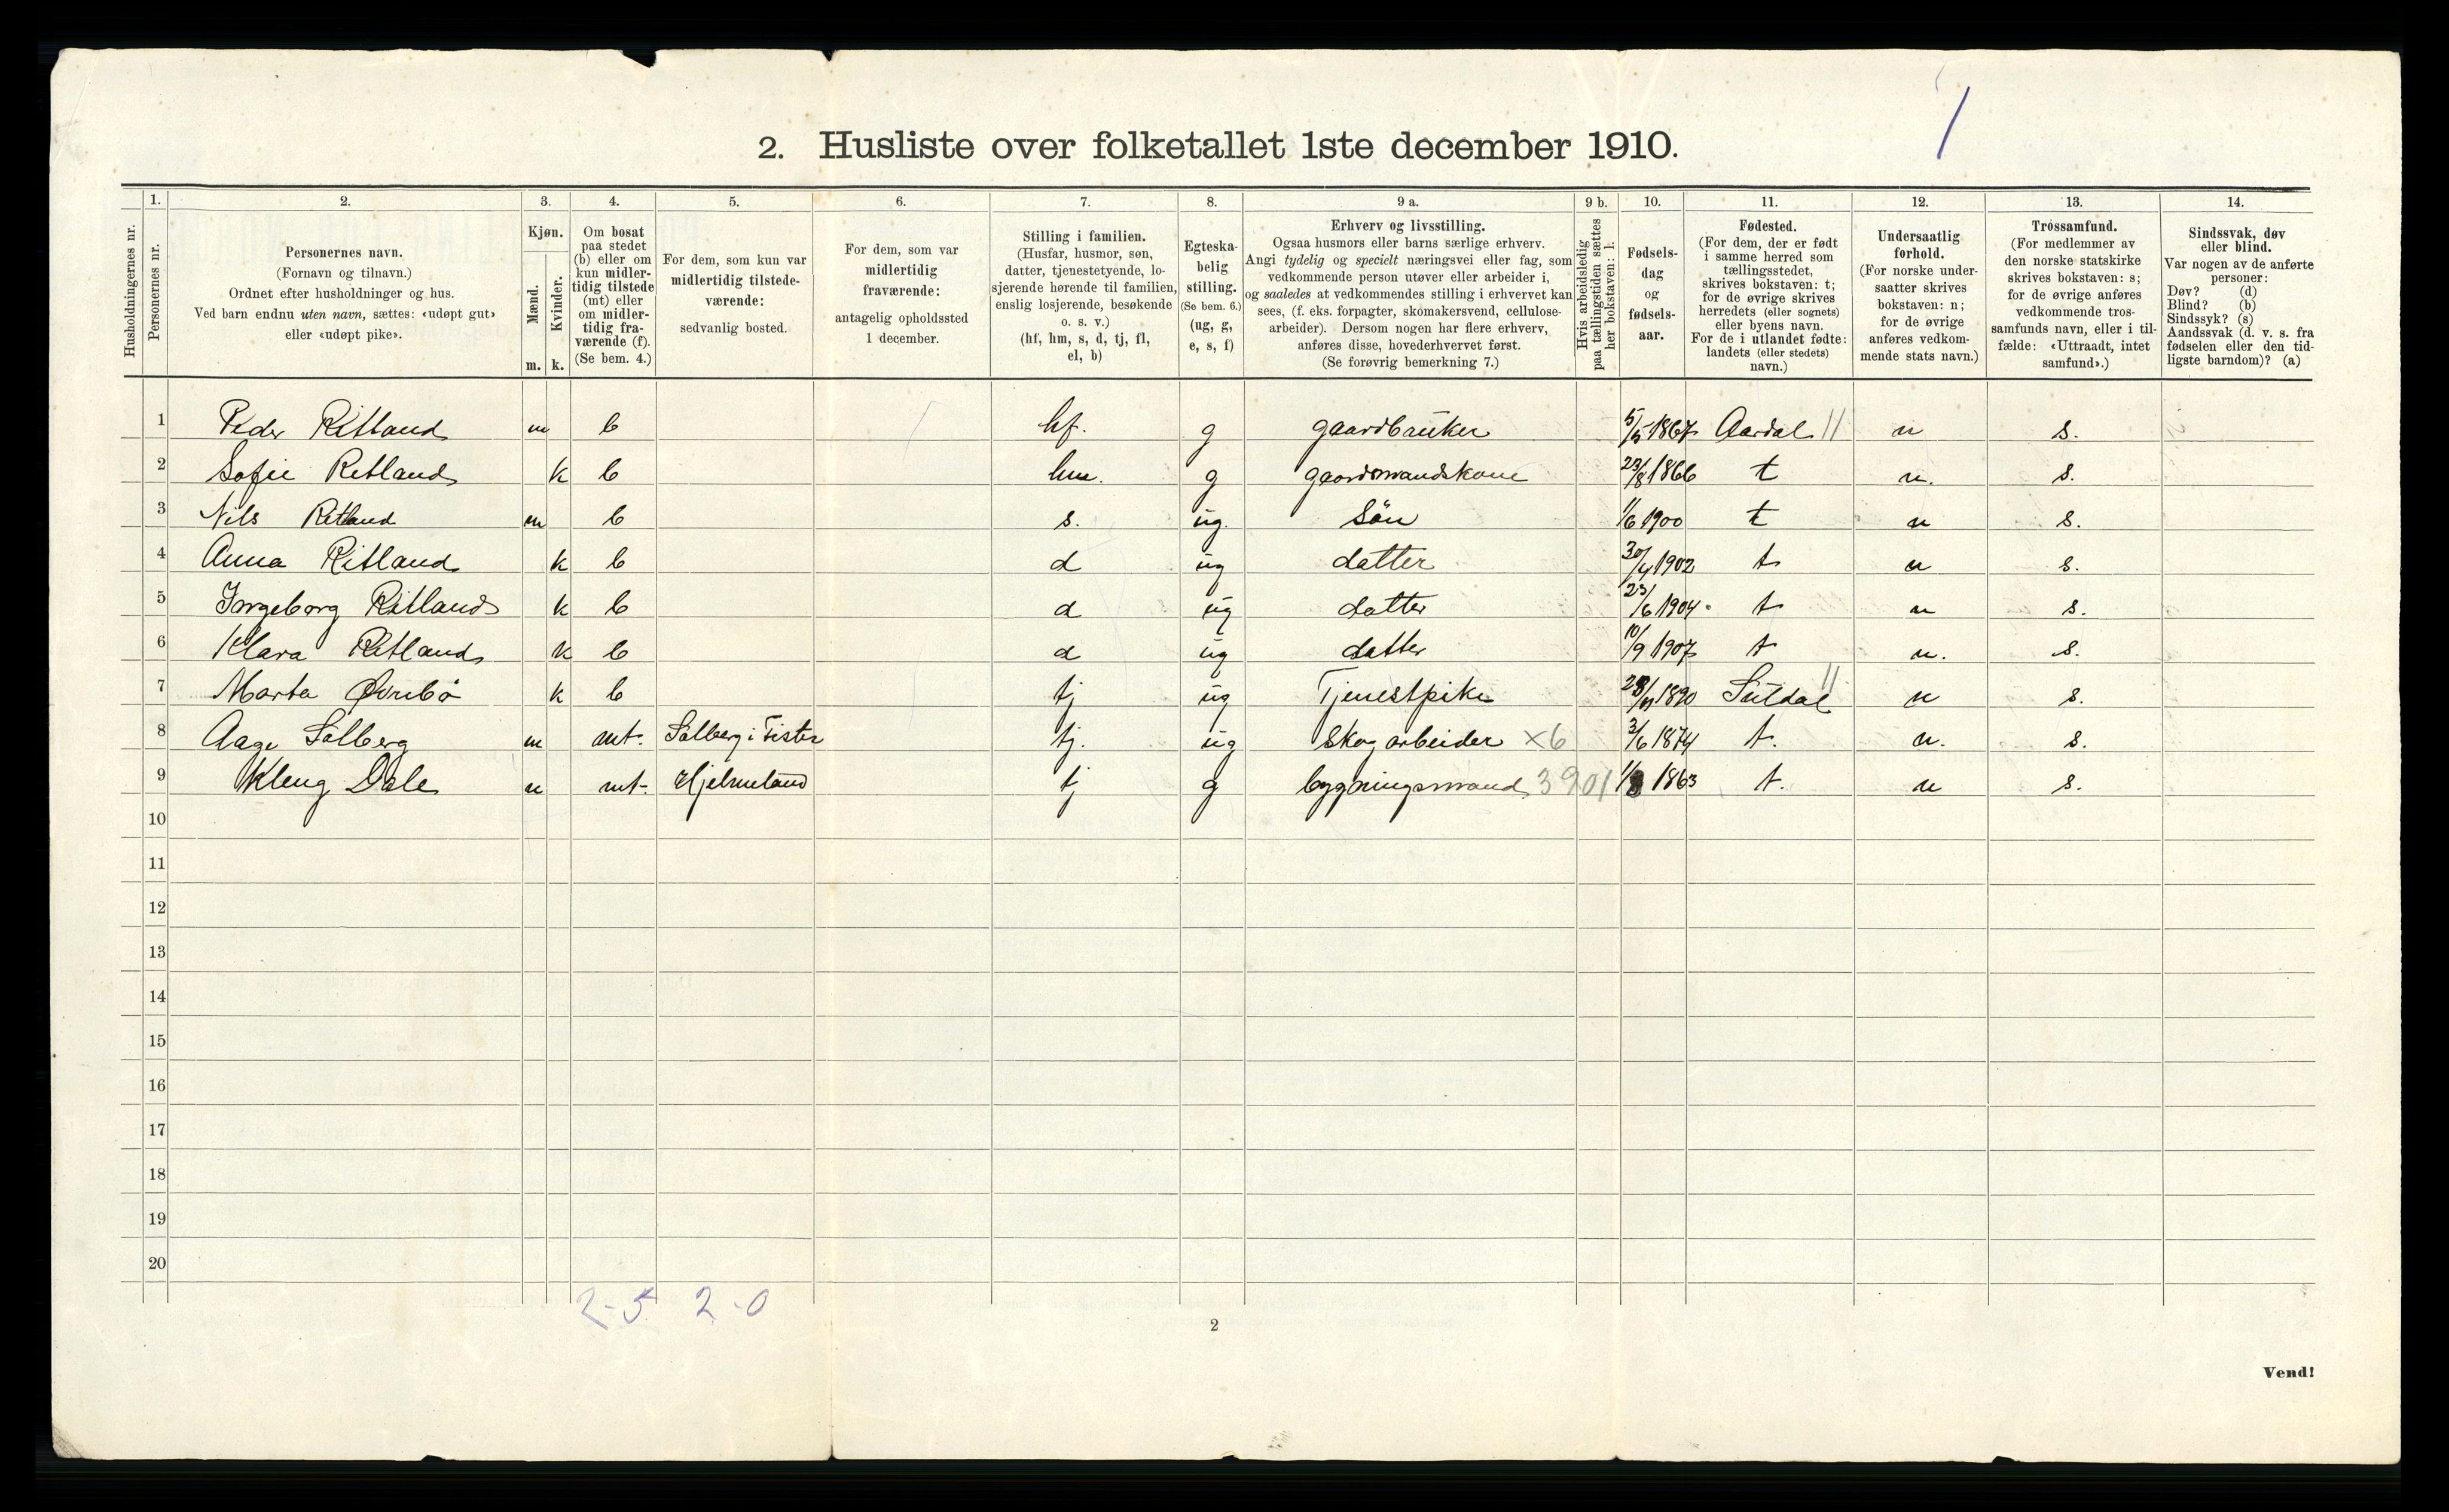 2. Husliste over folketallet 1ste december 1910.
Husholdningernes nr.
1. Personernes nr.
2. Personernes navn.
(Fornavn og tilnavn.)
Ordnet efter husholdninger og hus.
Ved barn endnu uten navn, sættes: «udøpt gut»
eller «udøpt pike».
3. Kjøn.
Mænd. m.
Kvinder. k.
4. Om bosat
paa stedet
(b) eller om
kun midler-
tidig tilstede
(mt) eller
om midler-
tidig fra-
værende (f).
(Se bem. 4.)
5. For dem, som kun var
midlertidig tilstede-
værende:
sedvanlig bosted.
6. For dem, som var
midlertidig
fraværende:
antagelig opholdssted
1 december.
7. Stilling i familien.
(Husfar, husmor, søn,
datter, tjenestetyende, lo-
sjerende hørende til familien,
enslig losjerende, besøkende
o. s. v.)
(hf, hm, s, d, tj, fl,
el, b)
8. Egteska-
belig
stilling.
(Se bem. 6.)
(ug, g,
e, s, f)
9 a. Erhverv og livsstilling.
Ogsaa husmors eller barns særlige erhverv.
Angi tydelig og specielt næringsvei eller fag, som
vedkommende person utøver eller arbeider i,
og saaledes at vedkommendes stilling i erhvervet kan
sees, (f. eks. forpagter, skomakersvend, cellulose-
arbeider). Dersom nogen har flere erhverv,
anføres disse, hovederhvervet først.
(Se forøvrig bemerkning 7.)
9 b. Hvis arbeidsledig
paa tællingstiden sættes
her bokstaven: l.
10. Fødsels-
dag
og
fødsels-
aar.
11. Fødested.
(For dem, der er født
i samme herred som
tællingsstedet,
skrives bokstaven: t;
for de øvrige skrives
herredets (eller sognets)
eller byens navn.
For de i utlandet fødte:
landets (eller stedets)
navn.)
12. Undersaatlig
forhold.
(For norske under-
saatter skrives
bokstaven: n;
for de øvrige
anføres vedkom-
mende stats navn.)
13. Trossamfund.
(For medlemmer av
den norske statskirke
skrives bokstaven: s;
for de øvrige anføres
vedkommende tros-
samfunds navn, eller i til-
fælde: «Uttraadt, intet
samfund».)
14. Sindssvak, døv
eller blind.
Var nogen av de anførte
personer:
Døv? (d)
Blind? (b)
Sindssyk? (s)
Aandssvak (d. v. s. fra
fødselen eller den tid-
ligste barndom)? (a)
1 Peder Ritland m b hf. g gaardbruker 5/5 1867 Aardal n s.
2 Sofie Ritland k b hm. g gaardmandskone 23/8 1866 t n. s.
3 Nils Ritland m b s. ug. sön 1/6 1900 t n s.
4 Anna Ritland k b d ug datter 30/4 1902 t n s.
5 Ingeborg Ritland k b d ug datter 23/6 1904 t n s.
6 Klara Ritland k b d ug datter 10/9 1907 t n. s.
7 Marta k b tj ug Tjenestpike 1890 Suldal n s.
8 Aage Solberg m mt. Solberg i tj. ug skogarbeider ×6 3/6 1874 t. n. s.
9 Kleng Dale m mt. Hjelmeland tj g bygningsmand 3901 1863 t. n s.
10
11
12
13
14
15
16
17
18
19
20
2-5 2-0
2
Vend!